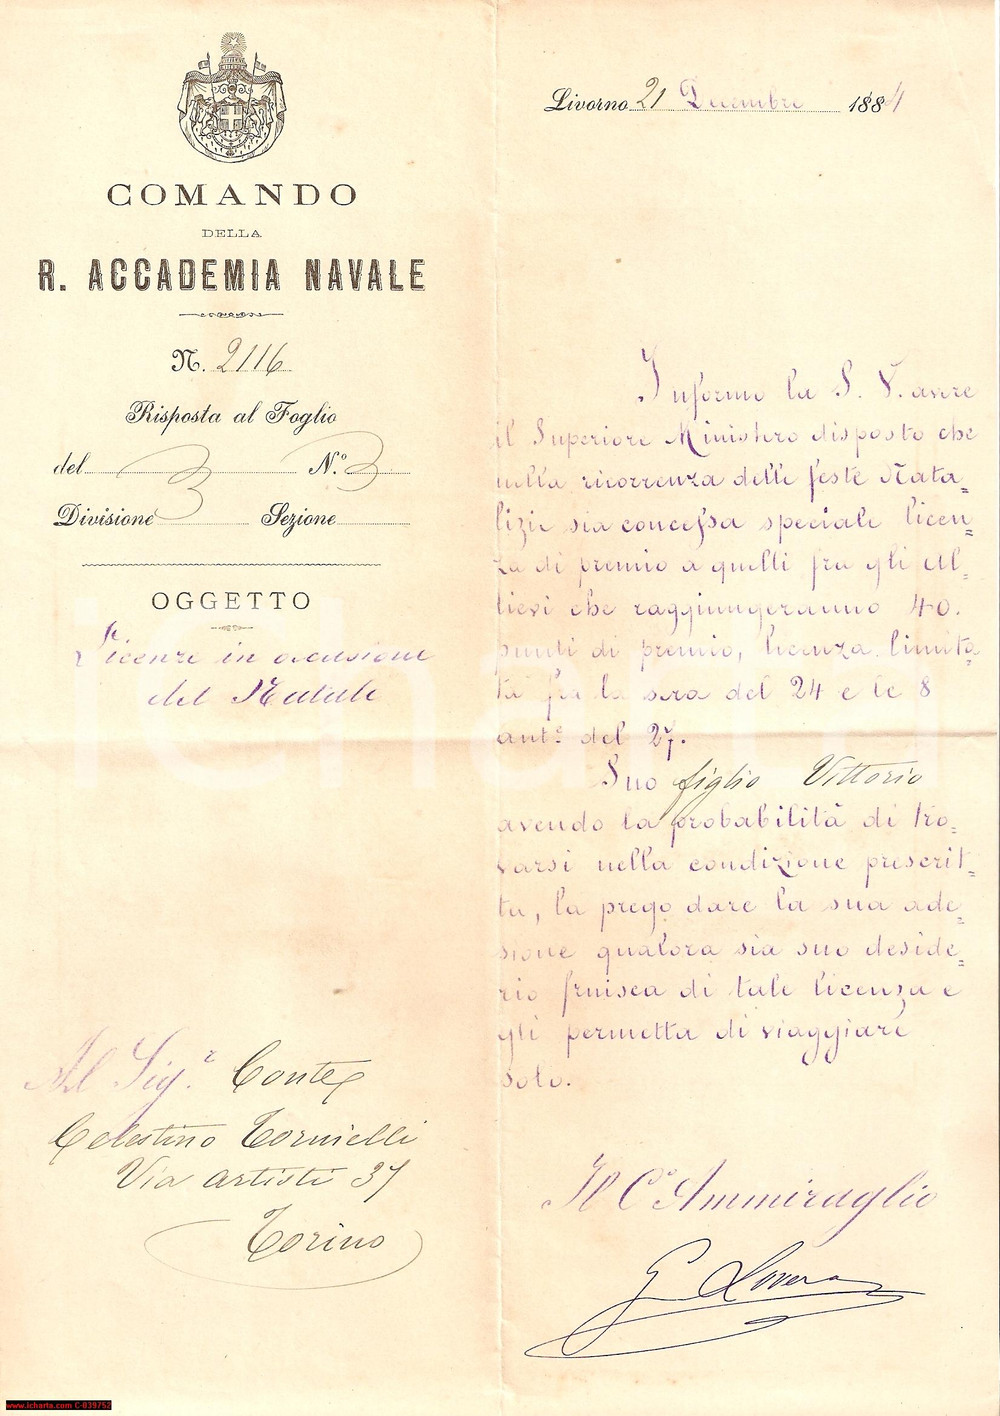 COMANDO
DELLA
R. ACCADEMIA NAVALE
N. 2116
Risposta al Foglio
del 3 N.º 3
Divisione Sezione
OGGETTO
Licenze in occasione
del Natale
Al Sig.r Conte
Celestino Tornielli
Via artisti 37
Torino
Livorno 21 Decembre 1884
Informo la S. V. avere
il Superiore Ministero disposto che
nella ricorrenza delle feste Nata=
lizie sia concessa speciale licen=
za di premio a quelli fra gli Al=
lievi che raggiungeranno 40.
punti di premio, licenza limita=
ta fra la sera del 24 e le 8
ant.e del 27.
Suo figlio Vittorio
avendo la probabilità di tro=
varsi nella condizione prescrit=
ta, la prego dare la sua ade=
sione qualora sia suo deside=
rio fruisca di tale licenza e
gli permetta di viaggiare
solo.
Il C.o Ammiraglio
G Lovera
www.icharta.com C-039752
icharta